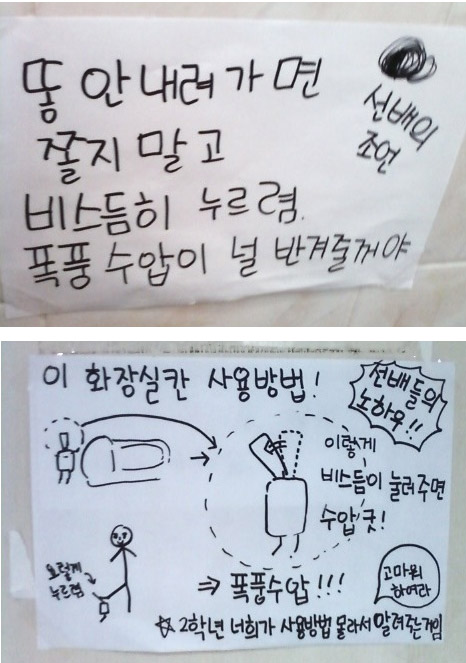 똥 안 내려가면
쫄지 말고
비스듬히 누르렴.
폭풍 수압이 널 반겨줄꺼야
선배의
조언
이 화장실칸 사용방법!
선배들의
노하우!!
이렇게
비스듬이 눌러주면
수압 굿!
요렇게
누르렴
⇒ 폭풍수압!!!
고마워
하여라
☆ 2학년 너희가 사용방법 몰라서 알려주는게임